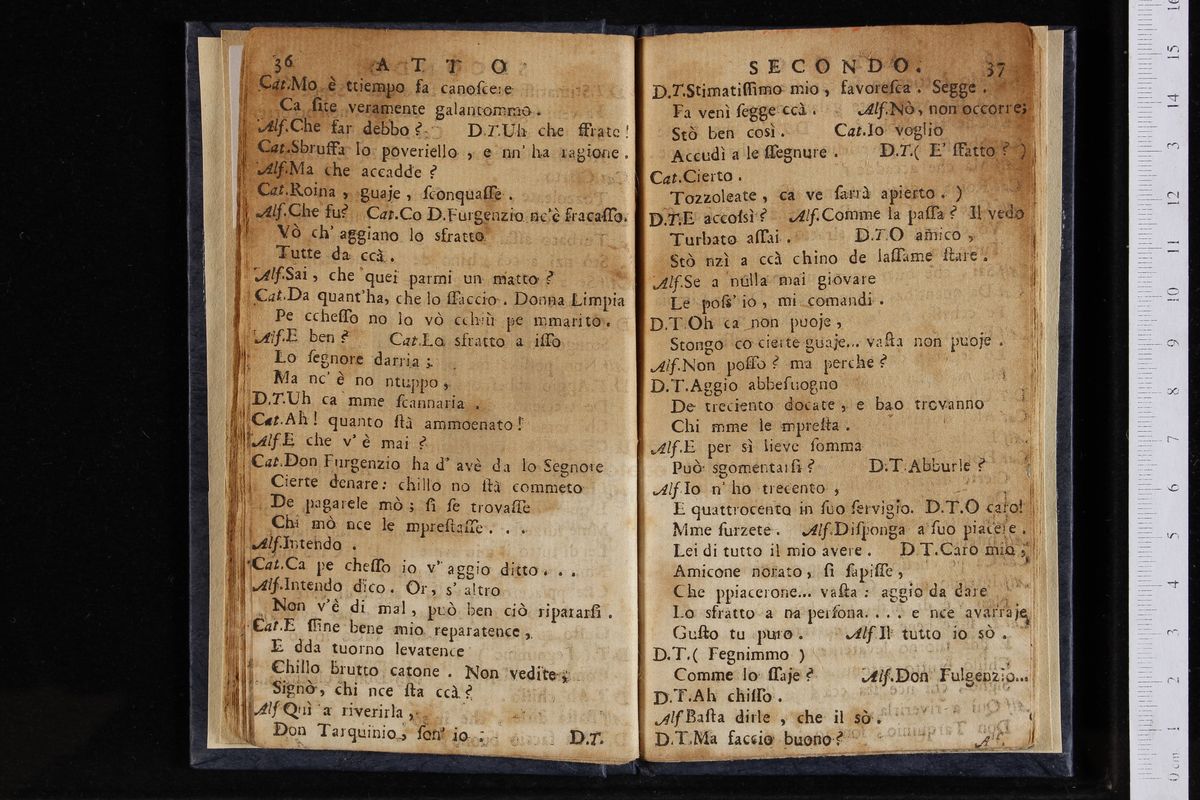 36 ATTO
Cat.Mo è ttiempo fa canoſcere
Ca ſite veramente galantommo.
Alf.Che far debbo? D.T.Uh che ſfrate!
Cat.Sbruffa lo poveriello, e nn' ha ragione.
Alf.Ma che accadde?
Cat.Roina, guaje, ſconquaſſe.
Alf.Che fu? Cat.Co D.Furgenzio nc'è fracaſſo.
Vò ch' aggiano lo sfratto
Tutte da ccà.
Alf.Sai, che quei parmi un matto?
Cat.Da quant'ha, che lo ſſaccio. Donna Limpia
Pe ccheſſo no lo vò cchiù pe mmarito.
Alf.E ben? Cat.Lo sfratto a iſſo
Lo ſegnore darria;
Ma nc' è no ntuppo,
D.T.Uh ca mme ſcannaria.
Cat.Ah! quanto ſtà ammoenato!
Alf.E che v' è mai?
Cat.Don Furgenzio ha d' avè da lo Segnore
Cierte denare: chillo no ſtà commeto
De pagarele mò; ſi ſe trovaſſe
Chi mò nce le mpreſtaſſe...
Alf.Intendo.
Cat.Ca pe cheſſo io v' aggio ditto...
Alf.Intendo dico. Or, s' altro
Non v'è di mal, può ben ciò ripararſi.
Cat.E ſſine bene mio reparatence,
E dda tuorno levatence
Chillo brutto catone. Non vedite;
Signò, chi nce ſta ccà?
Alf Quì a riverirla,
Don Tarquinio, ſon' io; D.T.
SECONDO. 37
D.T.Stimatiſſimo mio, favoreſca. Segge.
Fa venì ſegge ccà. Alf.Nò, non occorre;
Stò ben così. Cat.Io voglio
Accudì a le ſſegnure. D.T.( E' ſfatto? )
Cat.Cierto.
Tozzoleate, ca ve ſarrà apierto. )
D.T.E accoſsì? Alf.Comme la paſſa? Il vedo
Turbato aſſai. D.T.O amico,
Stò nzì a ccà chino de laſſame ſtare.
Alf.Se a nulla mai giovare
Le poſſ' io, mi comandi.
D.T.Oh ca non puoje,
Stongo co cierte guaje... vaſta non puoje.
Alf.Non poſſo? ma perche?
D.T.Aggio abbeſuogno
De treciento docate, e bao trovanno
Chi mme le mpreſta.
Alf.E per sì lieve ſomma
Può sgomentarſi? D.T.Abburle?
Alf.Io n' ho trecento,
E quattrocento in ſuo ſervigio. D.T.O caro!
Mme ſurzete. Alf.Diſponga a ſuo piacere.
Lei di tutto il mio avere. D T.Caro mio,
Amicone norato, ſi ſapiſſe,
Che ppiacerone... vaſta: aggio da dare
Lo sfratto a na perſona.... e nce avarraje
Guſto tu puro. Alf.Il tutto io sò.
D.T.( Fegnimmo )
Comme lo ſſaje? Alf.Don Fulgenzio...
D.T.Ah chiſſo.
Alf Baſta dirle, che il sò.
D.T.Ma faccio buono?